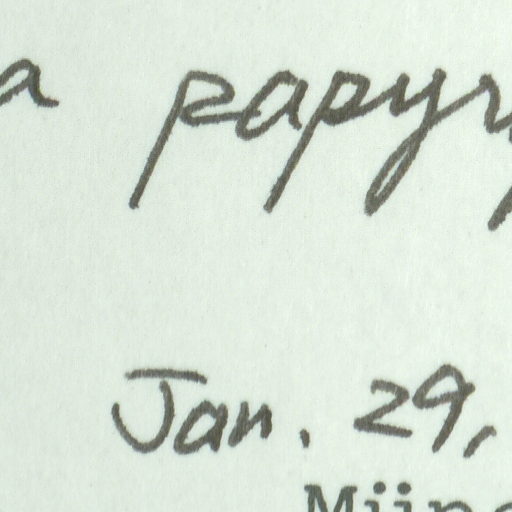 a papyr
Jan. 29,
Mün